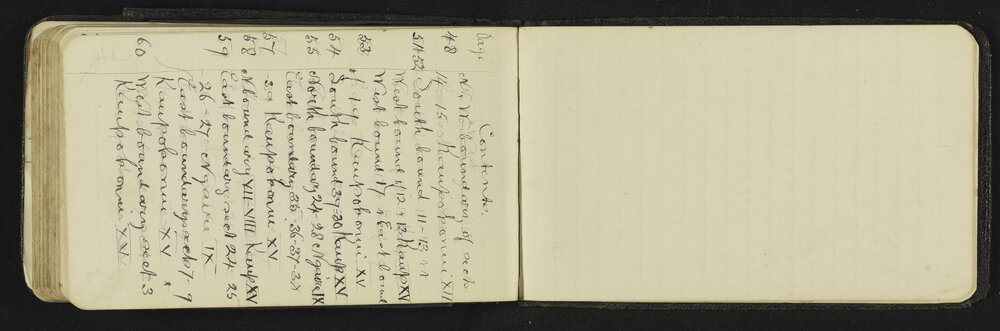 Contents.
Page
48 N. W. boundary of sects
14-15 Kaupokonui XII
51 52 South bound 11-13 &
West bound of 12 & 13 Kaup XV
53 West bound 17 & East bound
of 19 Kaupokonui XV
54 South bound 29-30 Kaup XV
55 North boundary 24-28 Ngaere IX
East boundary 35-36-37-38
57 -29 Kaupokonui XV
58 N boundary VII-VIII Kaup XV
59 East boundary sect 24 25
26-27 Ngaire IX
East boundary sects 7-9
Kaupokonui XV
60 West boundary sect 3
Kaupokonui XVI